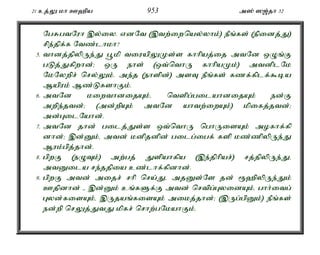 21 உத்லு மா ஊஹிய 953 அஸ் ஸஜ்தா 32
பேசுபவரோ இல்லை. எனவே (இவற்றையெல்லாம்) நீங்கள் (நினைத்து)
சிந்திக்க வேண்டாமா?
5. வானத்திலிருந்து பூமி வரையிலுமுள்ள காரியத்தை அவனே ஒழுங்கு
படுத்துகிறான்; ஒரு நாள் (ஒவ்வொரு காரியமும்) அவனிடமே
மேலேறிச் செல்லும். அந்த (நாளின்) அளவு நீங்கள் கணக்கிடக்கூடிய
ஆயிரம் ஆண்டுகளாகும்.
6. அவனே மறைவானதையும், வெளிப்படையானதையும் நன்கு
அறிந்தவன்; (அன்றியும் அவனே யாவற்றையும்) மிகைத்தவன்;
அன்புடையோன்.
7. அவனே தான் படைத்துள்ள ஒவ்வொரு பொருளையும் அழகாக்கி
னான்; இன்னும், அவன் மனிதனின் படைப்பைக் களி மண்ணிலிருந்து
ஆரம்பித்தான்.
8. பிறகு (நழுவும்) அற்பத் துளியாகிய (இந்திரியச்) சத்திலிருந்து,
அவனுடைய சந்ததியை உண்டாக்கினான்.
9. பிறகு அவன் அதைச் சரி செய்து, அதனுள்ளே தன் ரூஹிலிருந்தும்
ஊதினான் - இன்னும் உங்களுக்கு அவன் செவிப்புலனையும், பார்வைப்
புலன்களையும், இருதயங்களையும் அமைத்தான்; (இருப்பினும்) நீங்கள்
நன்றி செலுத்துவது மிகச் சொற்பமேயாகும்.